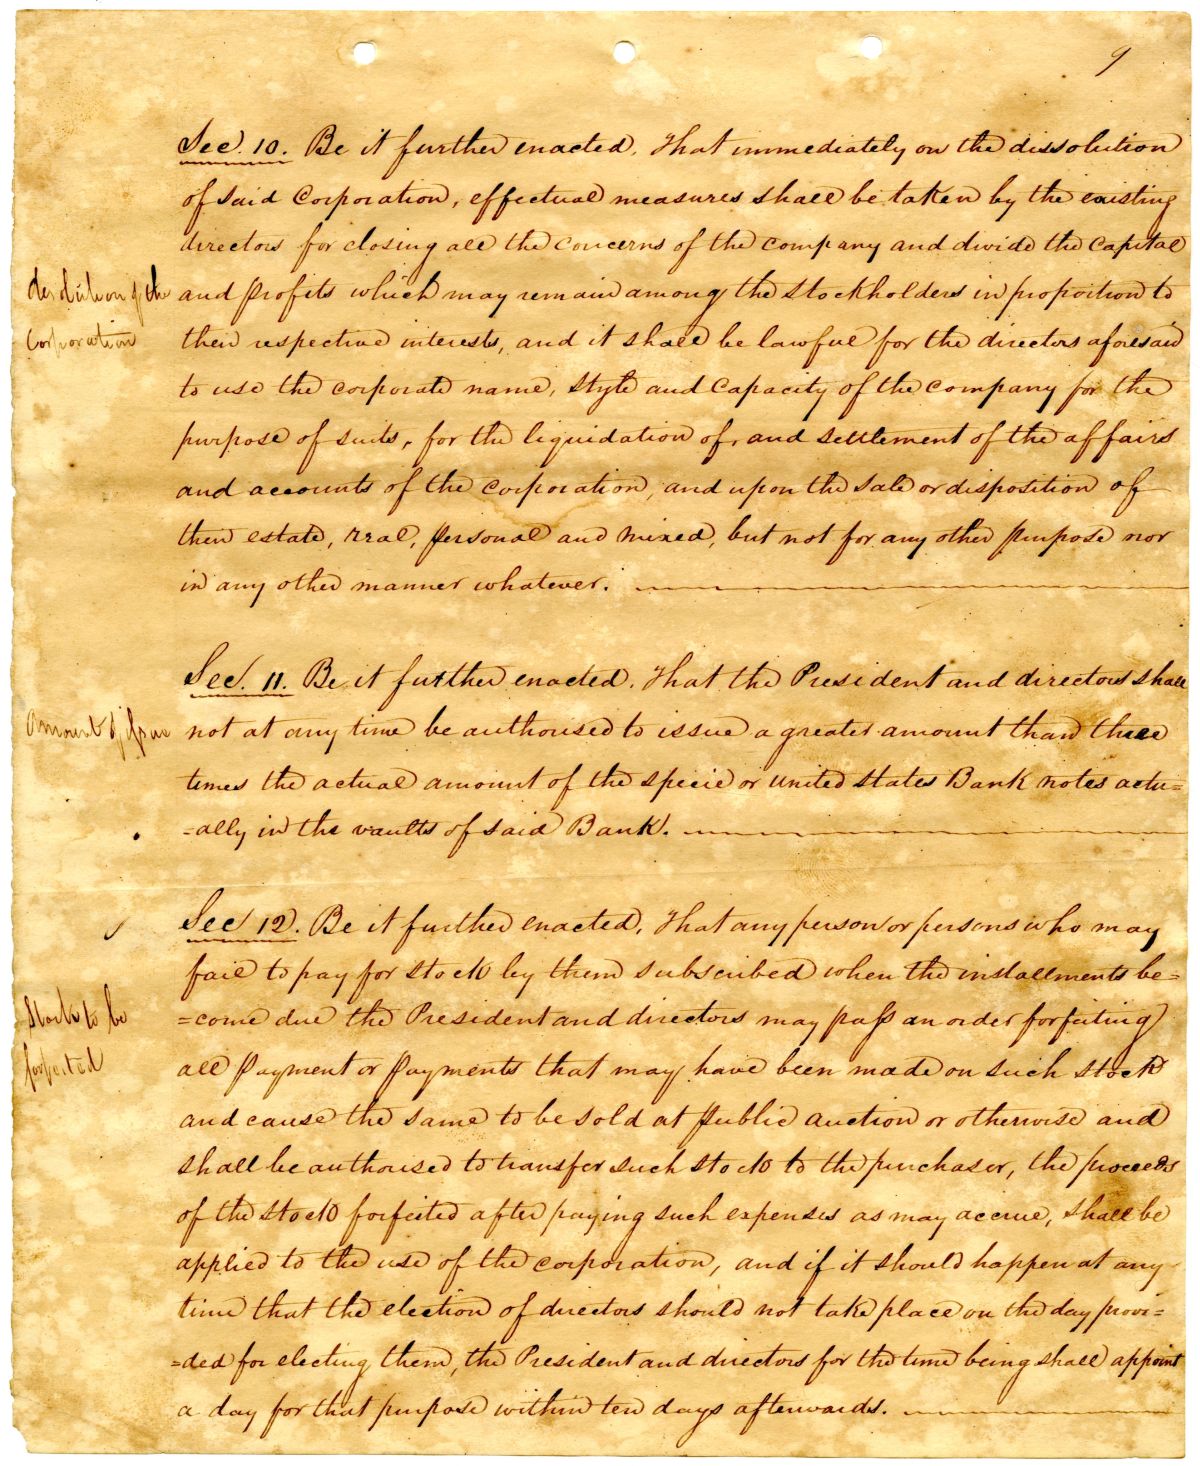 9
Sec. 10. Be it further enacted, That immediately on the dissolution
of said Corporation, effectual measures shall be taken by the existing
directors for closing all the concerns of the company and divide the Capital
desolution of the
Corporation
and profits which may remain among the Stockholders in proportion to
their respective interests, and it shall be lawful for the directors aforesaid
to use the corporate name, Style and Capacity of the Company for the
purpose of suits, for the liquidation of, and settlement of the affairs
and accounts of the corporation, and upon the sale or disposition of
their estate, real, personal and mixed, but not for any other purpose nor
in any other manner whatever.
Sec. 11. Be it further enacted, That the President and directors shall
Amount of issue
not at any time be authorised to issue a greater amount than three
times the actual amount of the specie or United States Bank notes actu=
=ally in the vaults of said Bank.
Sec 12. Be it further enacted, That any person or persons who may
fail to pay for stock by them subscribed when the installments be=
Stock to be
forfeited
=come due the President and directors may pass an order forfeiting
all payment or payments that may have been made on such stock
and cause the same to be sold at public auction or otherwise and
shall be authorised to transfer such stock to the purchaser, the proceeds
of the stock forfeited after paying such expenses as may accrue, shall be
applied to the use of the corporation, and if it should happen at any
time that the election of directors should not take place on the day provi=
=ded for electing them, the President and directors for the time being shall appoint
a day for that purpose within ten days afterwards.